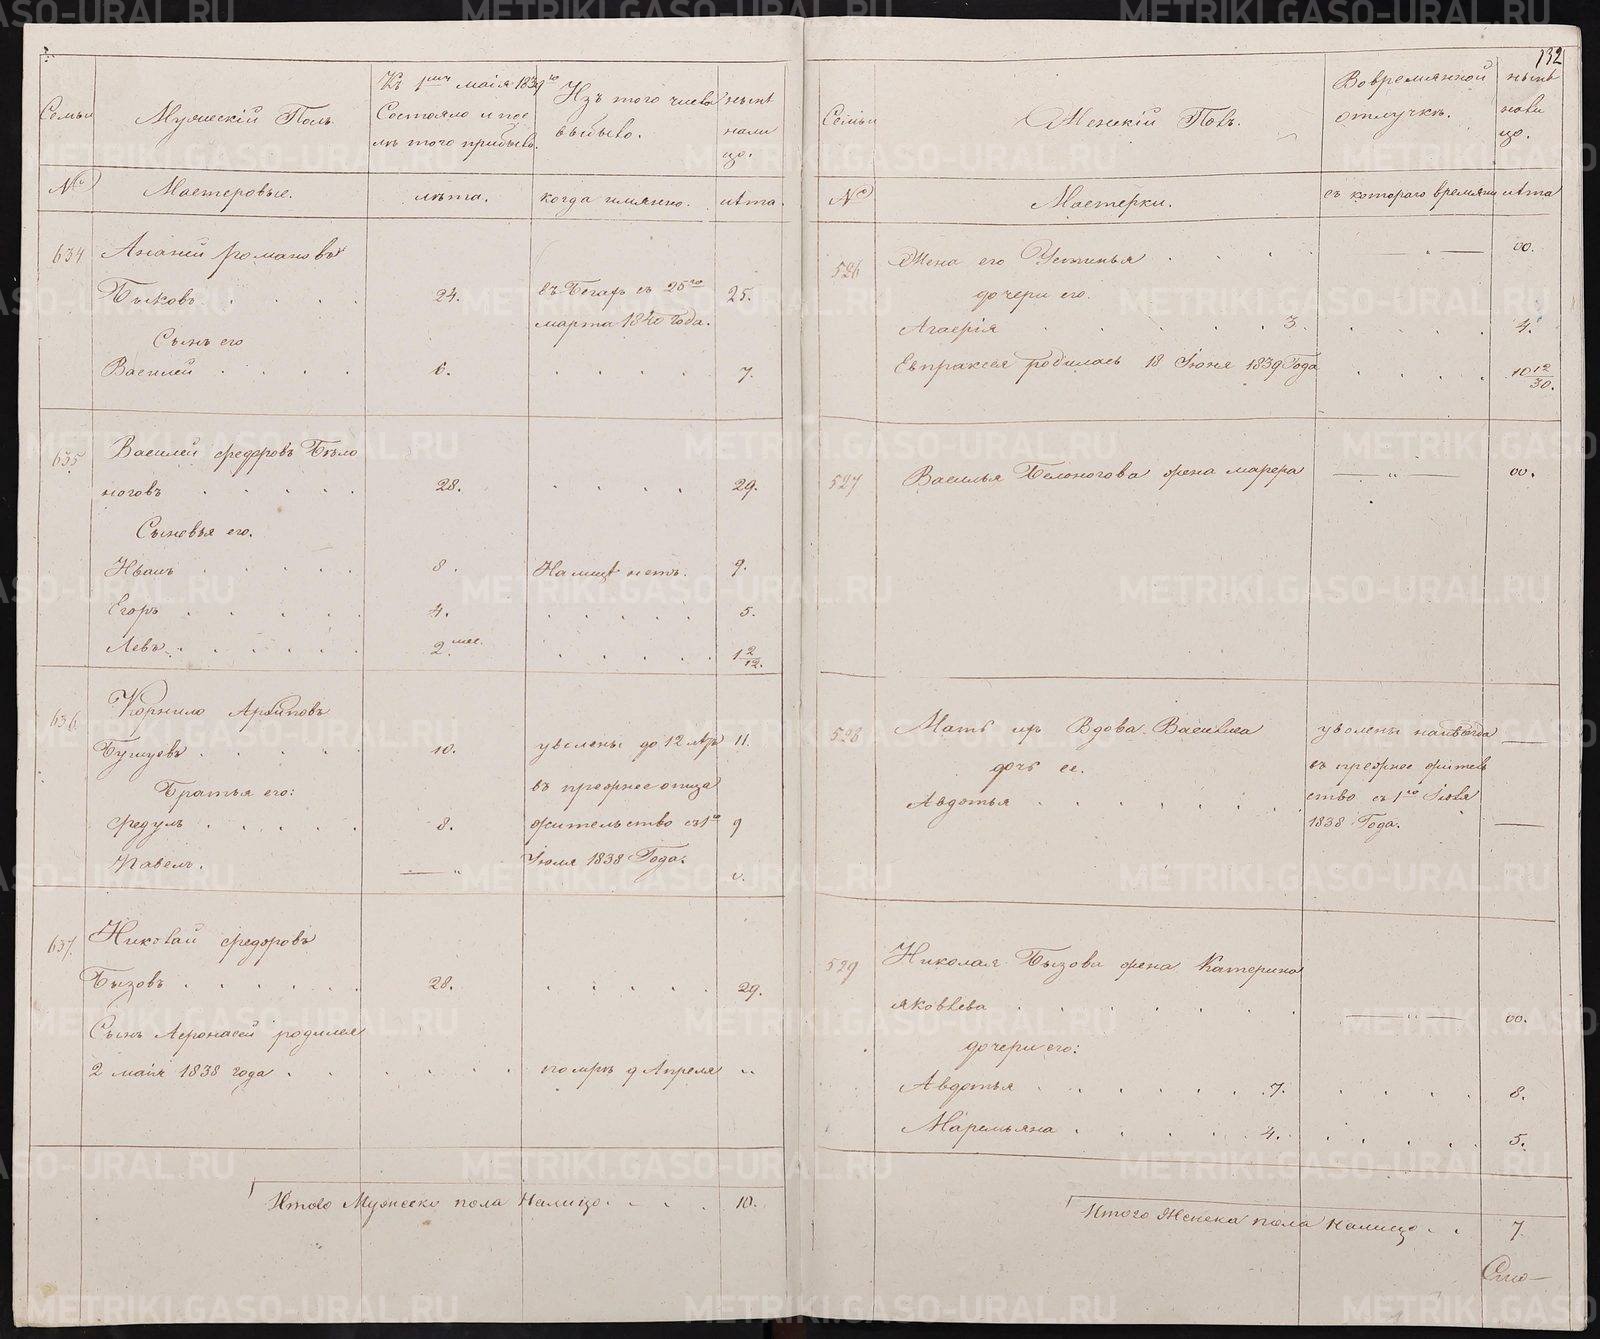 Семьи
Мужескій Полъ.
Къ 1му маія 1839го
Состояло и пос
лѣ того прибыло.
Изъ того числа
выбыло.
нынѣ
нали
цо.
№
Мастеровые.
лѣта.
когда имянно.
лѣта.
634
Ананей романовъ
Быковъ . . . . .
24.
въ Бегах съ 25го
марта 1840 года.
25.
Сынъ его
Василей . . . .
6.
7.
635
Василей федоровъ Бѣло
ноговъ . . . . .
28.
29.
Сыновья его.
Иванъ . . . . .
8.
На лице нетъ.
9.
Егоръ . . . . .
4.
5.
Левъ . . . . . .
2 мес.
1 2/12.
636
Корнило Архиповъ
Бушуевъ . . . . .
10.
уволены до 12 лѣтъ
11.
въ прежнее
Братья его:
Федулъ . . . . .
8.
жительство съ 1го
9
Павелъ.
Іюля 1838 Года.
637.
Николай федоровъ
Бызовъ . . . . . .
28.
29.
Сынъ Афонасей родился
2 маія 1838 года . . . . . .
помре 9 Апреля
Итого Мужеска пола Налицо . . . .
10.
132
Семьи
Женскій Полъ.
Вовремянной
отлучкѣ.
нынѣ
нали
цо.
№
Мастерки.
съ котораго времяни
лѣта
526
Жена его Устинья . . . .
00.
дочери его.
Агаерія . . . . . . 3.
4.
Евпраксея родилась 18 Іюня 1839 Года
10 12/30.
527
Василья Белоногова жена марфа
00.
528
Мать их Вдова Василиса
уволены навсегда
дочь ее.
въ прежнее житель
Авдотья . . . . . . .
ство съ 1го Іюля
1838 Года.
529
Николая Бызова жена Катерина
яковлева . . . . . . .
00.
дочери его:
Авдотья . . . . . . 7.
8.
Маремьяна . . . . . 4.
5.
Итого Женска пола налицо . .
7.